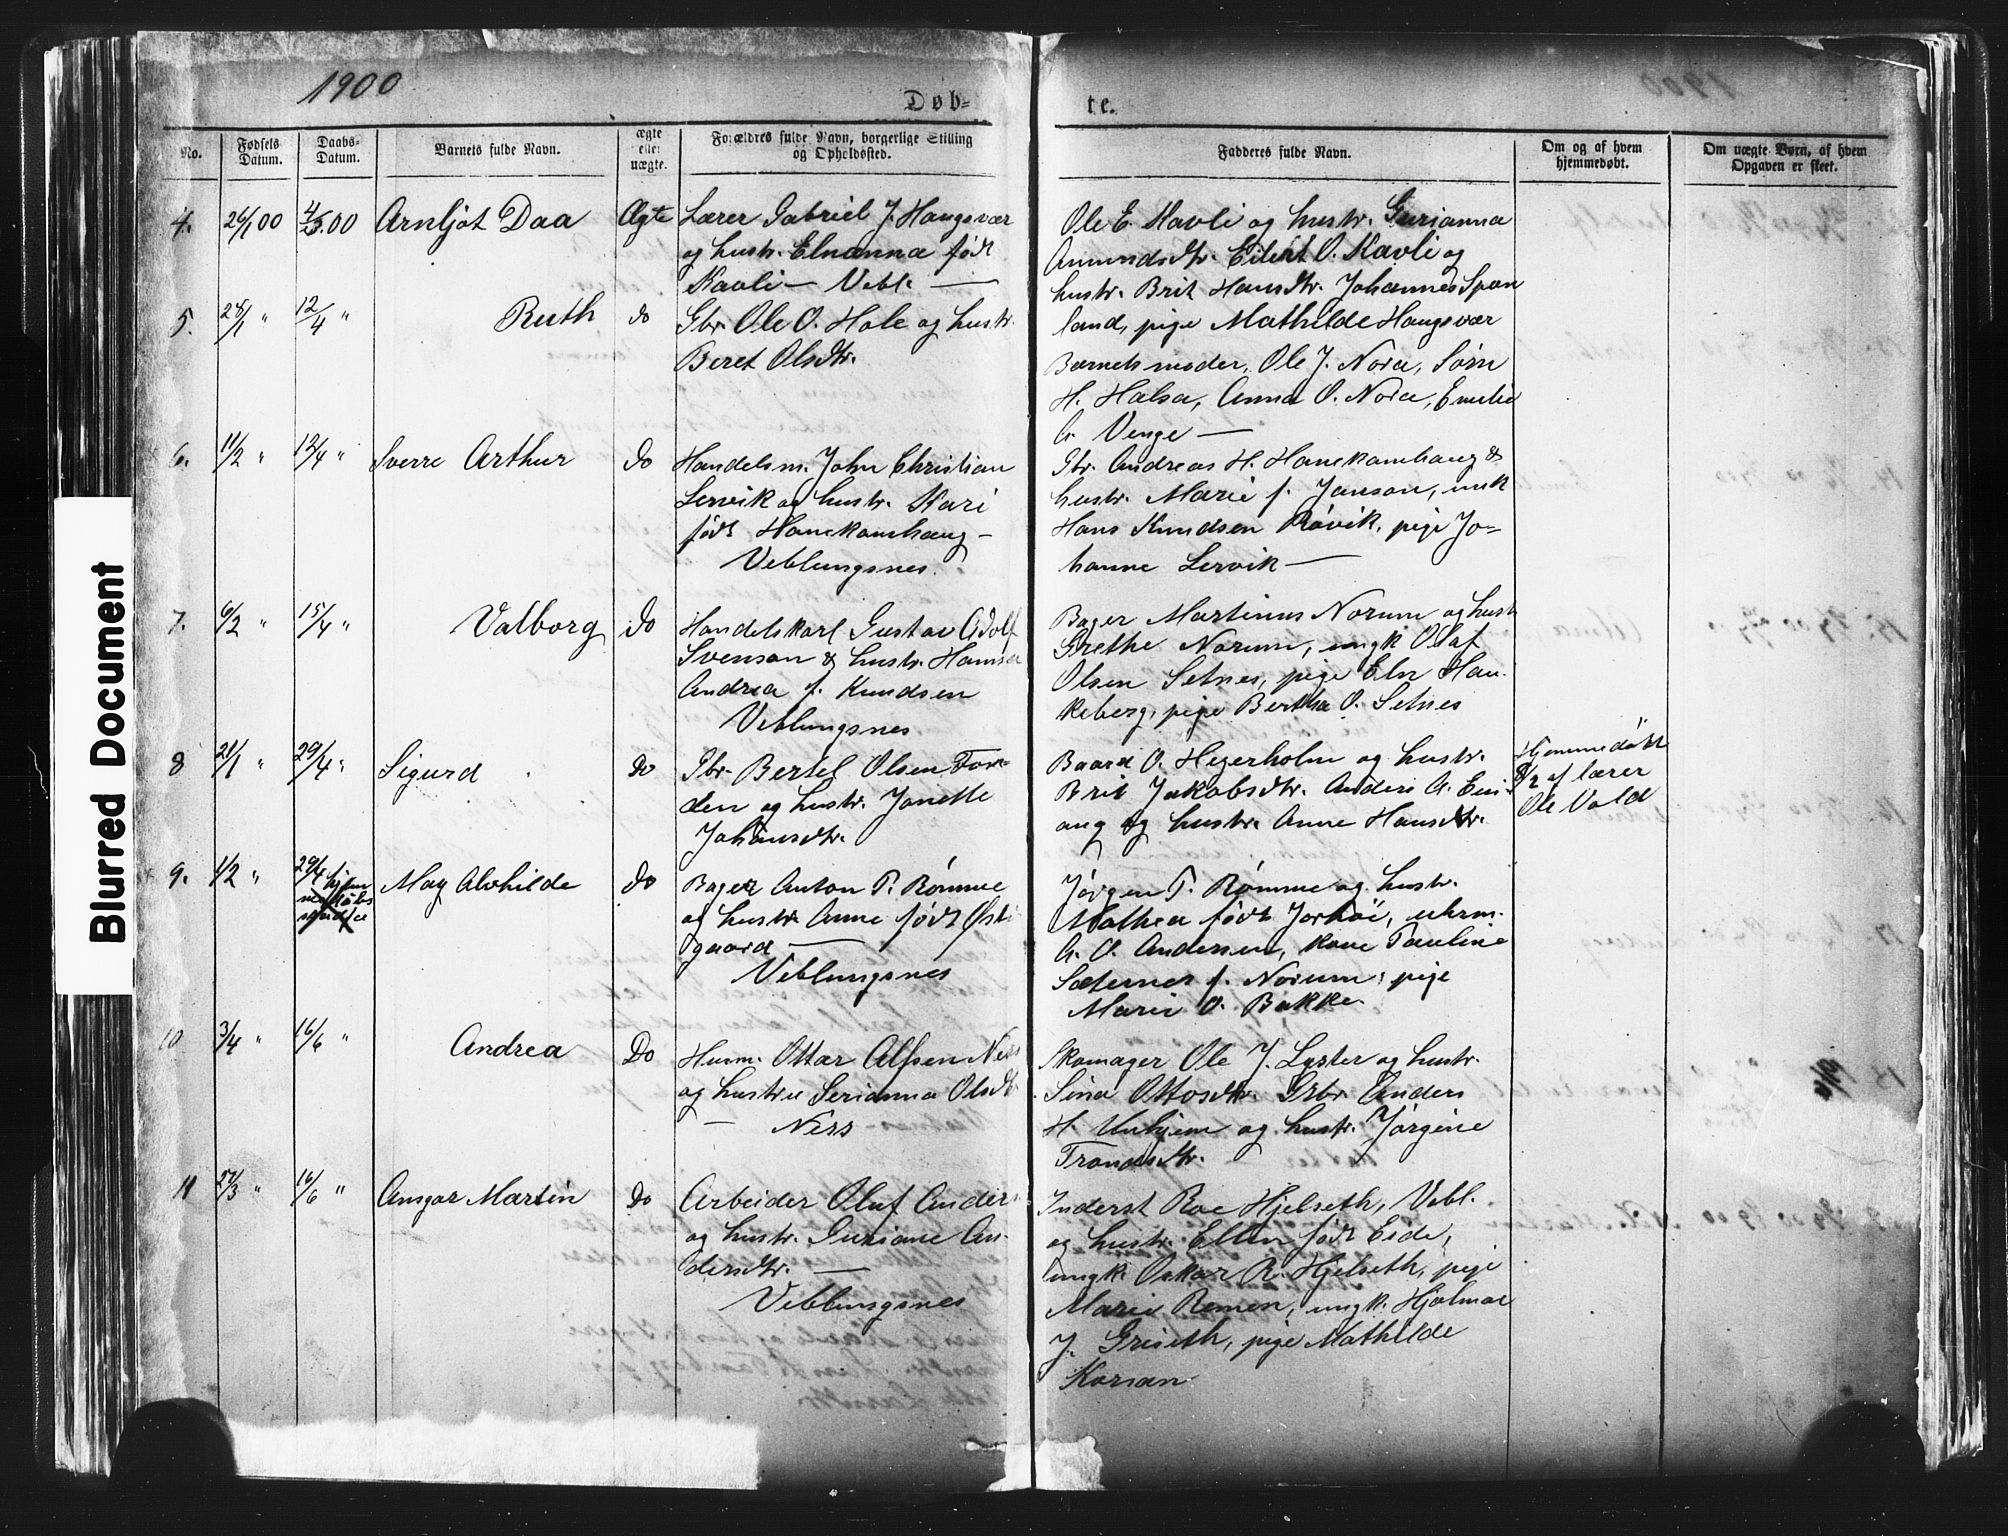 1900
Døb=
te.
No.
Fødsels Datum.
Daabs-Datum.
Barnets fulde Navn.
ægte eller uægte.
Forældres fulde Navn, borgerlige Stilling og Opholdssted.
Fadderes fulde Navn.
Om og af hvem hjemmedøbt.
Om uægte Børn, af hvem Opgaven er skeet.
4. 26/1 00 4/3.00 Arnljot Daa Ægte Lærer Gabriel J. Haugsvær
og hustr. Elnanna født
Kavli — Vebl. —
Ole E. Kavli og hustr. Gurianna
Amundsdtr. Eilert O. Kavli og
hustr. Brit Hansdtr. Johannes Span
land, pige Mathilde Haugsvær
5. 28/1 " 12/4 " Ruth do Gbr. Ole O. Hole og hustr.
Beret Olsdtr.
Barnets moder, Ole J. Nora, Sørn
H. Halsa, Anna O. Nora, Emilie
Venge —
6. 11/2 " 12/4 " Sverre Arthur do Handelsm. John Christian
Lervik og hustr. Kari
født Hanekamhaug —
Veblungsnes.
Gbr. Andreas H. Hanekamhaug &
hustr. Marie f. Janson, unk
Hans Knudsen Røvik, pige Jo-
hanne Lervik —
7. 6/2 " 15/4 " Valborg do Handelskarl Gustav Adolf
Svenson & hustr. Hansa
Andrea f. Knudsen
Veblungsnes
Bager Martinus Norum og hustr
Grethe Norum, ungk Olaf
Olsen Setnes, pige Eln Hau-
keberg, pige Bertha O. Setnes
8 21/1 " 29/4 " Sigurd Do Gbr. Bertel Olsen Tor-
den og hustr. Jonette
Johansdtr.
Baard O. Hegerholm og hustr.
Brit Jakobsdtr. Anders A. Ein-
ang og hustr. Anne Hansdtr.
Hjemmedøbt
8/2 af lærer
Ole Vold
9. 1/2 " 29/4 May Alvhilde do Bager Anton T. Rømme
og hustr Anne født Øst
gaard —
Veblungsnes
Jørgen T. Rømme og hustr.
Mathea født Jorhøi, uhrm.
A. O. Andersen, kone Pauline
Sæternes f. Norum, pige
Marie O. Bakke
10 3/4 " 16/6 " Andrea Do Husm. Ottar Alfsen Ness
og hustru Serianna Olsdtr
— Ness
Skomager Ole J. Lyster og hustr.
Sina Ottosdtr. Grbr. Anders
H. Unhjem og hustr. Jørgine
Trondsdtr.
11 27/3 " 16/6 " Ansgar Martin Do Arbeider Oluf Anders
og hustr. Guriane An-
dersdtr. —
Veblungsnes
Inderst Roe Hjelseth, Vebl.
og hustr. Ellen født Eide,
ungk. Oskar R. Hjelseth, pige
Marie Remen, ungk. Hjalmar
J. Griseth, pige Mathilde
Korsan
Blurred Document